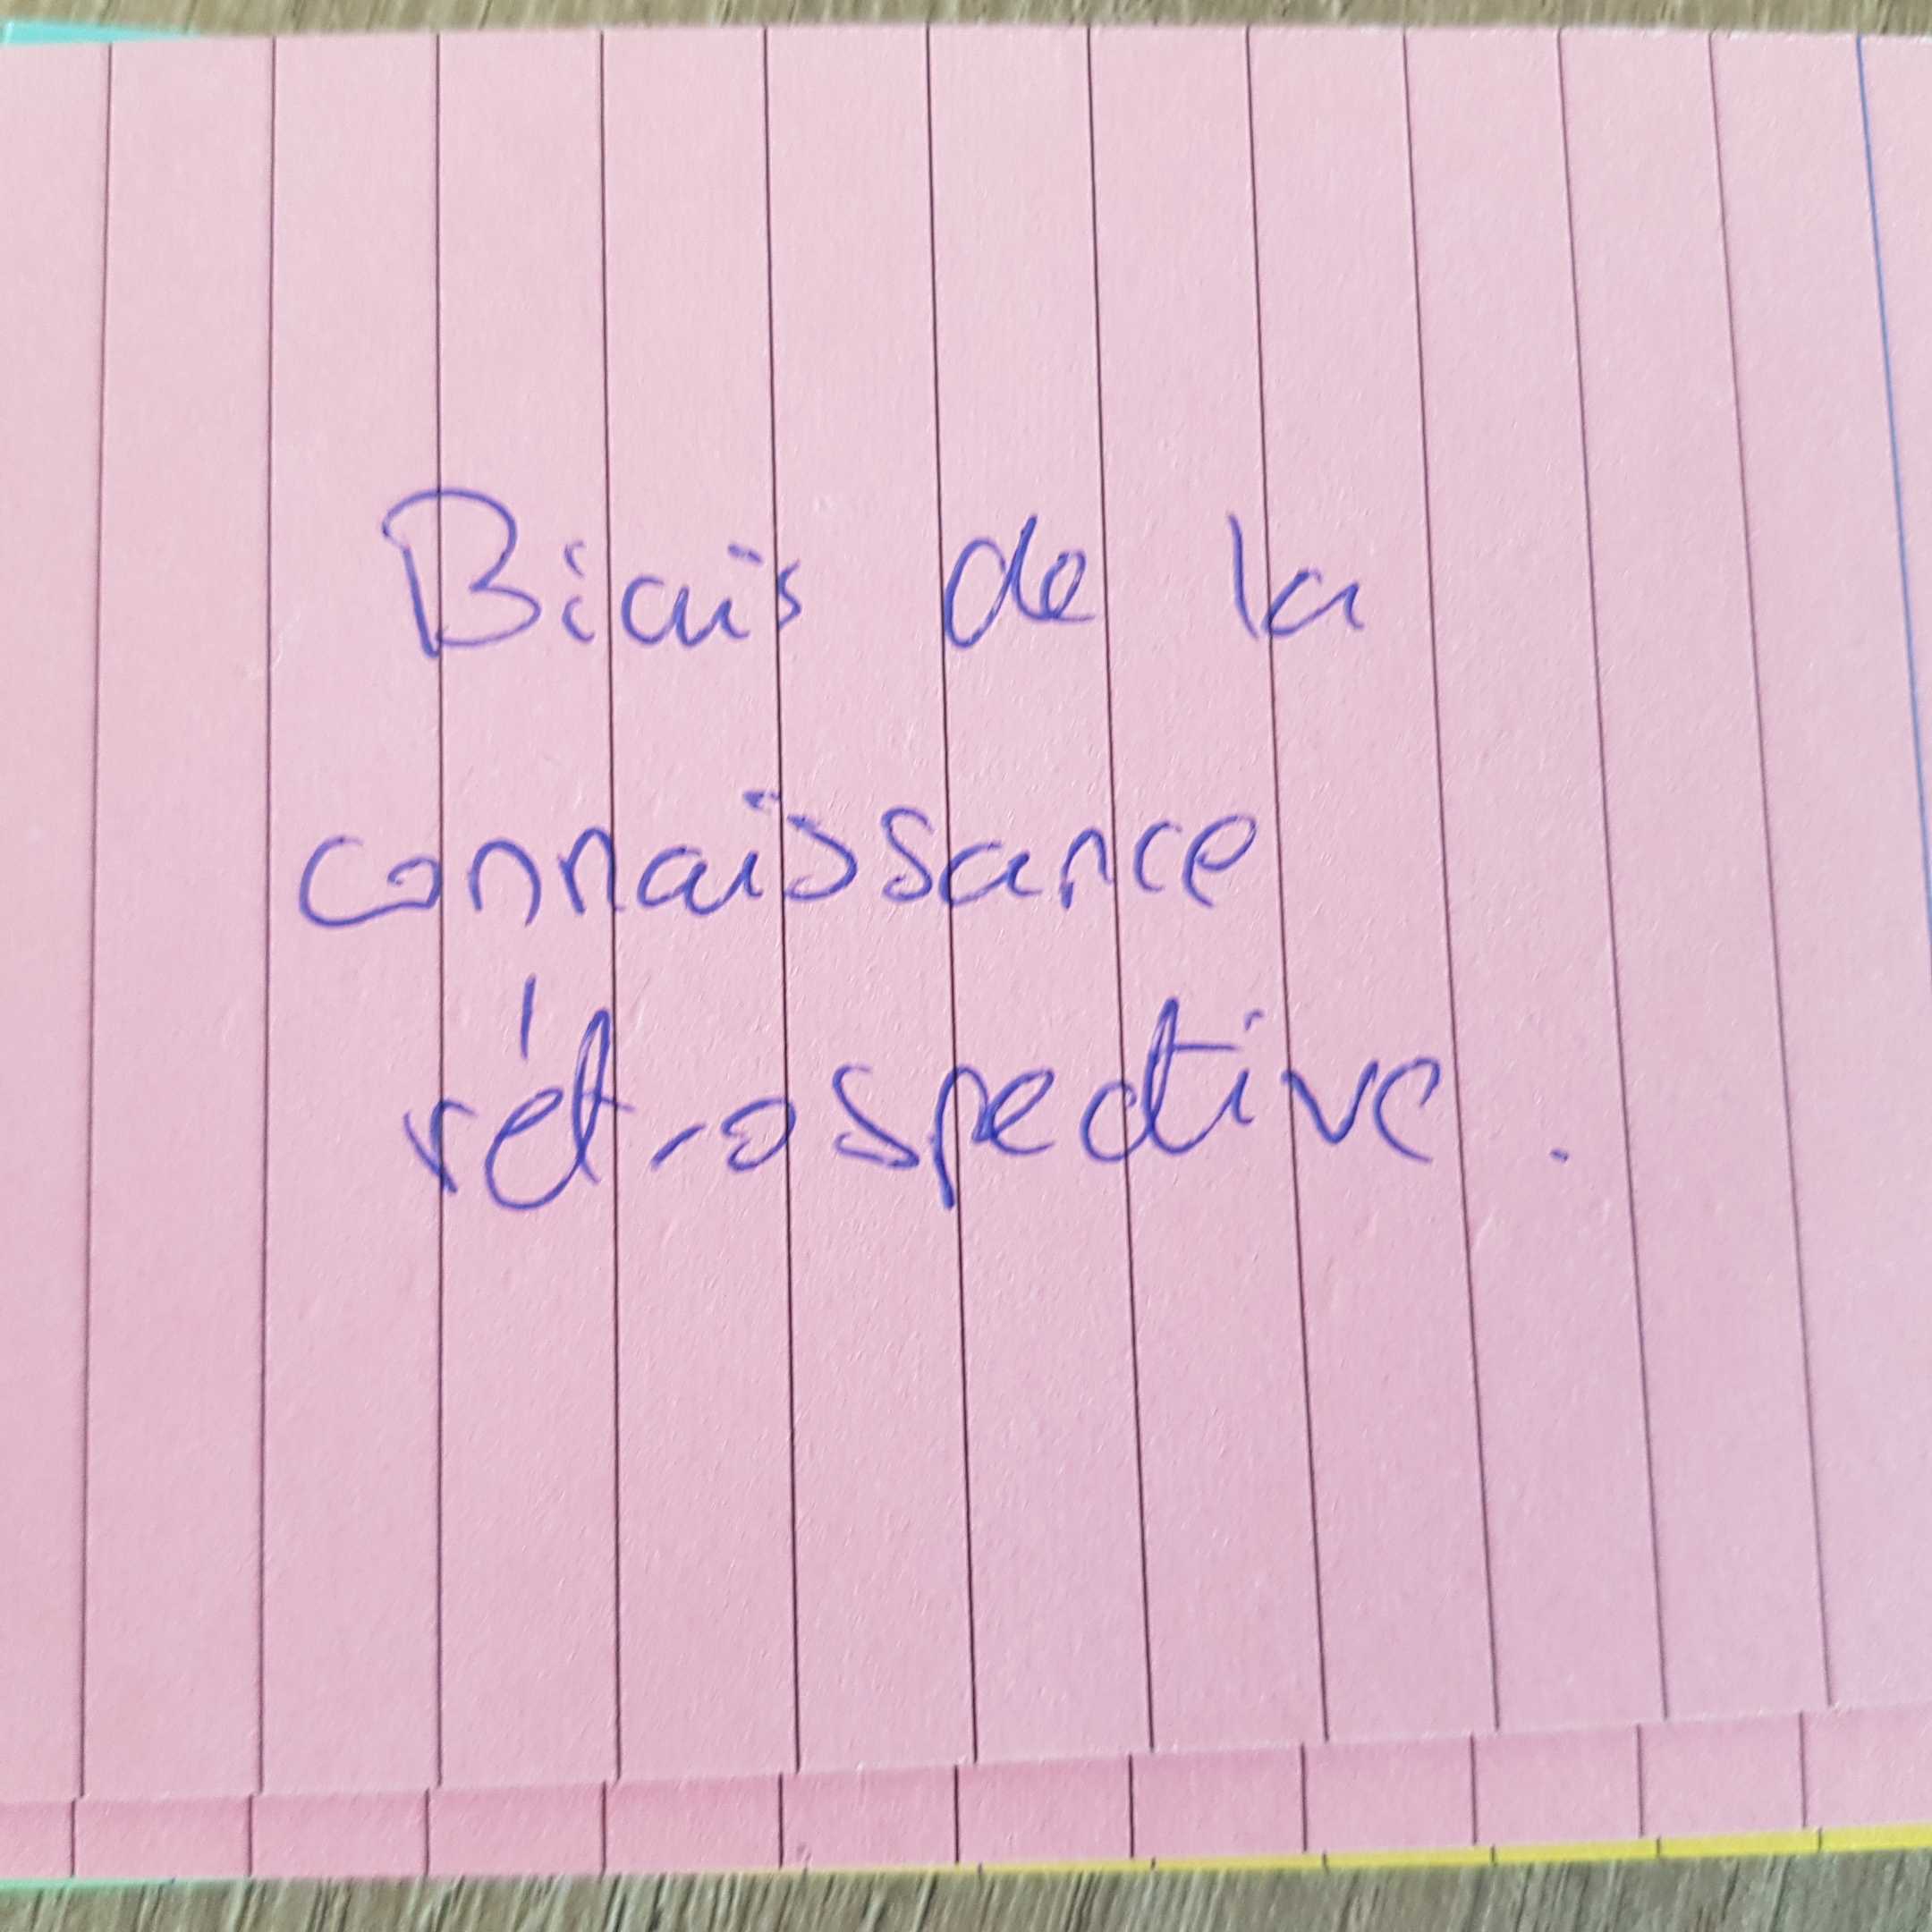 Biais de la
connaissance
rétrospective.